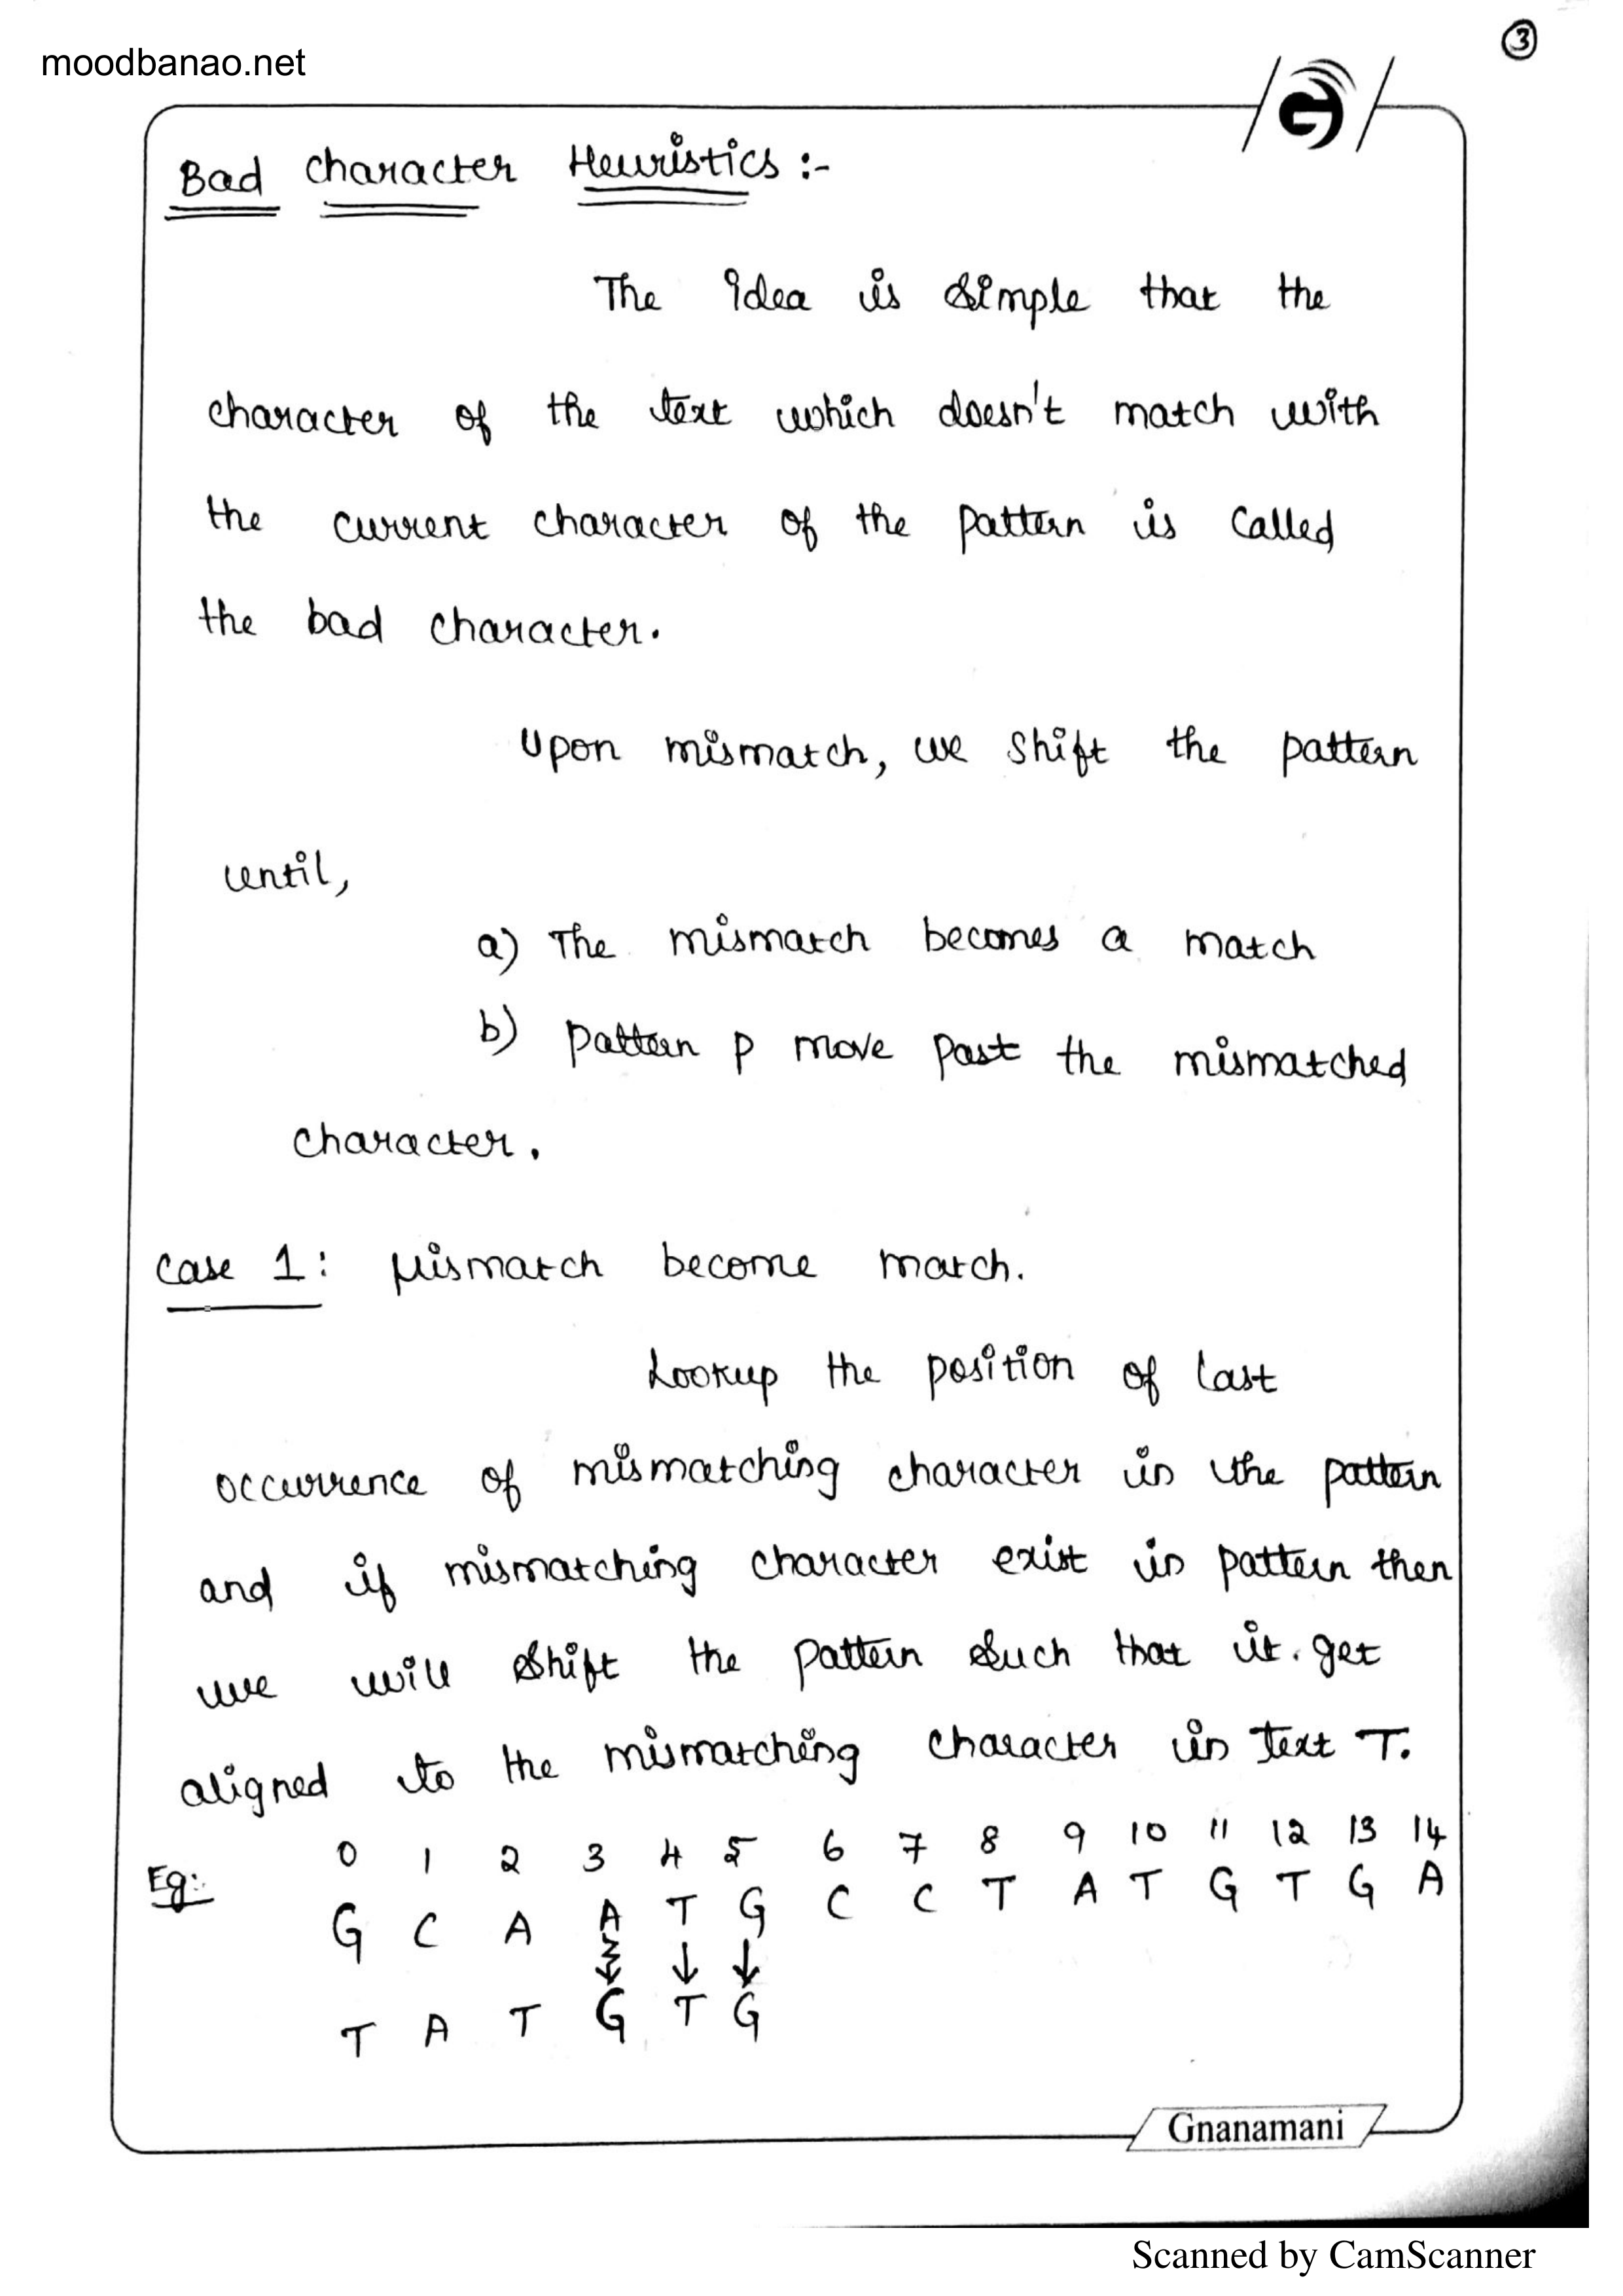 3
moodbanao.net
G
Bad character Heuristics :-
The idea is simple that the
character of the text which doesn't match with
the current character of the pattern is called
the bad character.
Upon mismatch, we shift the pattern
until,
a) The mismatch becomes a match
b) pattern p move past the mismatched
character.
Case 1: Mismatch become match.
Lookup the position of last
occurrence of mismatching character in the pattern
and if mismatching character exist in pattern then
we will shift the pattern such that it. get
aligned to the mismatching character in text T.
0 1 2 3 4 5 6 7 8 9 10 11 12 13 14
Eg:- G C A A T G C C T A T G T G A
T A T G T G
Gnanamani
Scanned by CamScanner